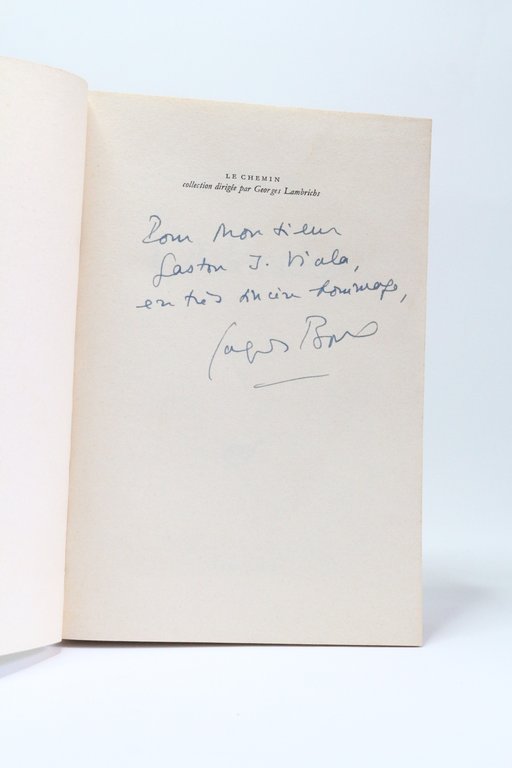 LE CHEMIN
collection dirigée par Georges Lambrichs
Pour Monsieur
Gaston J. Viala,
en très sincère hommage,
Jacques Borel